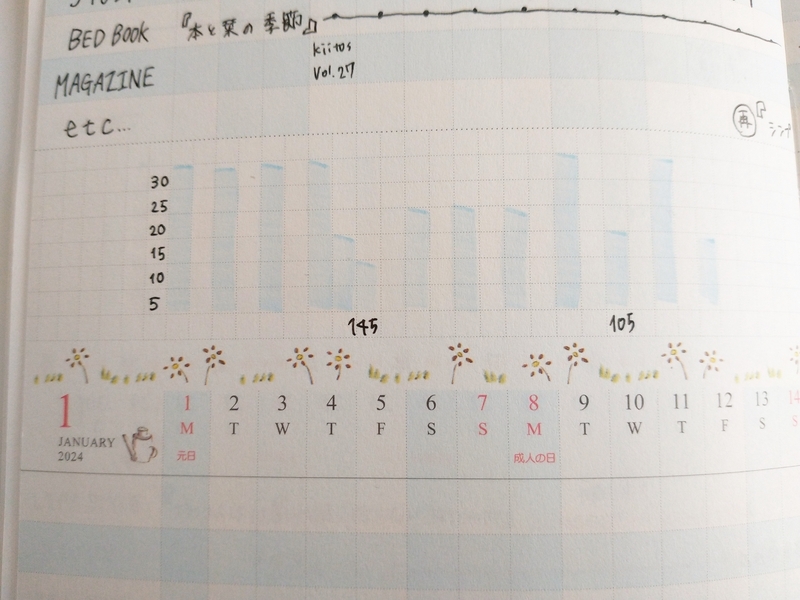 BED BOOK 『本と栞の季節』
kiitos
MAGAZINE Vol.27
etc...
再『シンデ
30
25
20
15
10
5
145 105
1 1 2 3 4 5 6 7 8 9 10 11 12 13 14
M T W T F S S M T W T F S S
JANUARY
2024 元日 成人の日